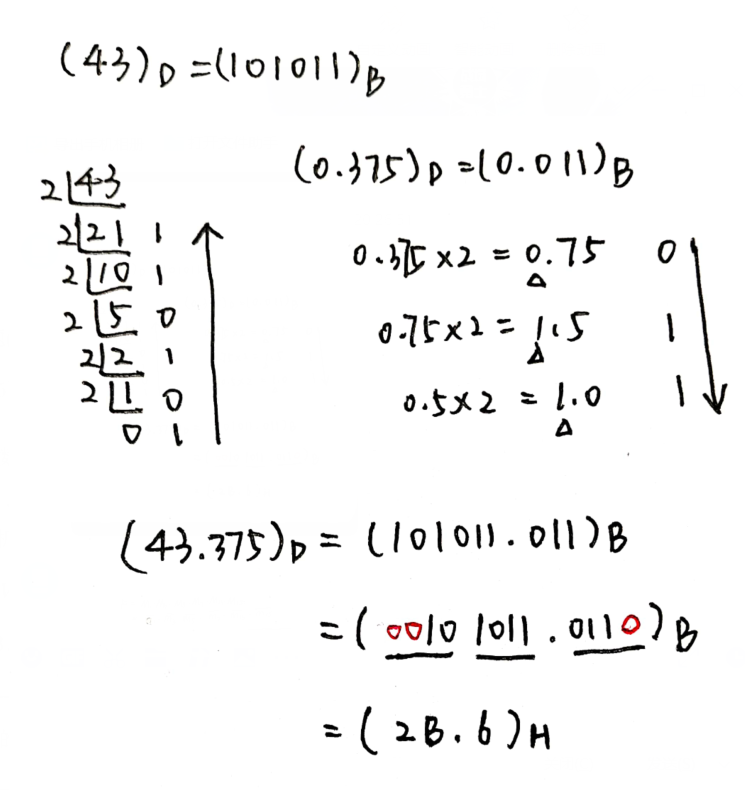 (43)D =(101011)B
2 43
2 21 1
2 10 1
2 5 0
2 2 1
2 1 0
0 1
(0.375)D =(0.011)B
0.375×2 = 0.75 0
0.75×2 = 1.5 1
0.5×2 = 1.0 1
(43.375)D = (101011.011)B
= (0010 1011.0110)B
= (2B.6)H